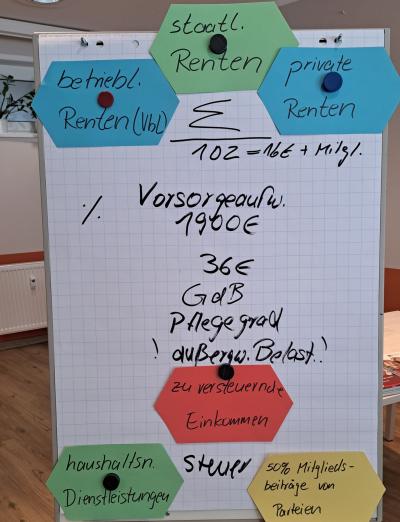 staatl.
Renten
betriebl.
Renten (VbL)
private
Renten
Σ
102 = 16€ + Mitgl.
./. Vorsorgeaufw.
1900€
36€
GdB
Pflegegrad
! außergw. Belast.!
zu versteuernde
Einkommen
Steuer
haushaltsn.
Dienstleistungen
50% Mitglieds-
beiträge von
Parteien